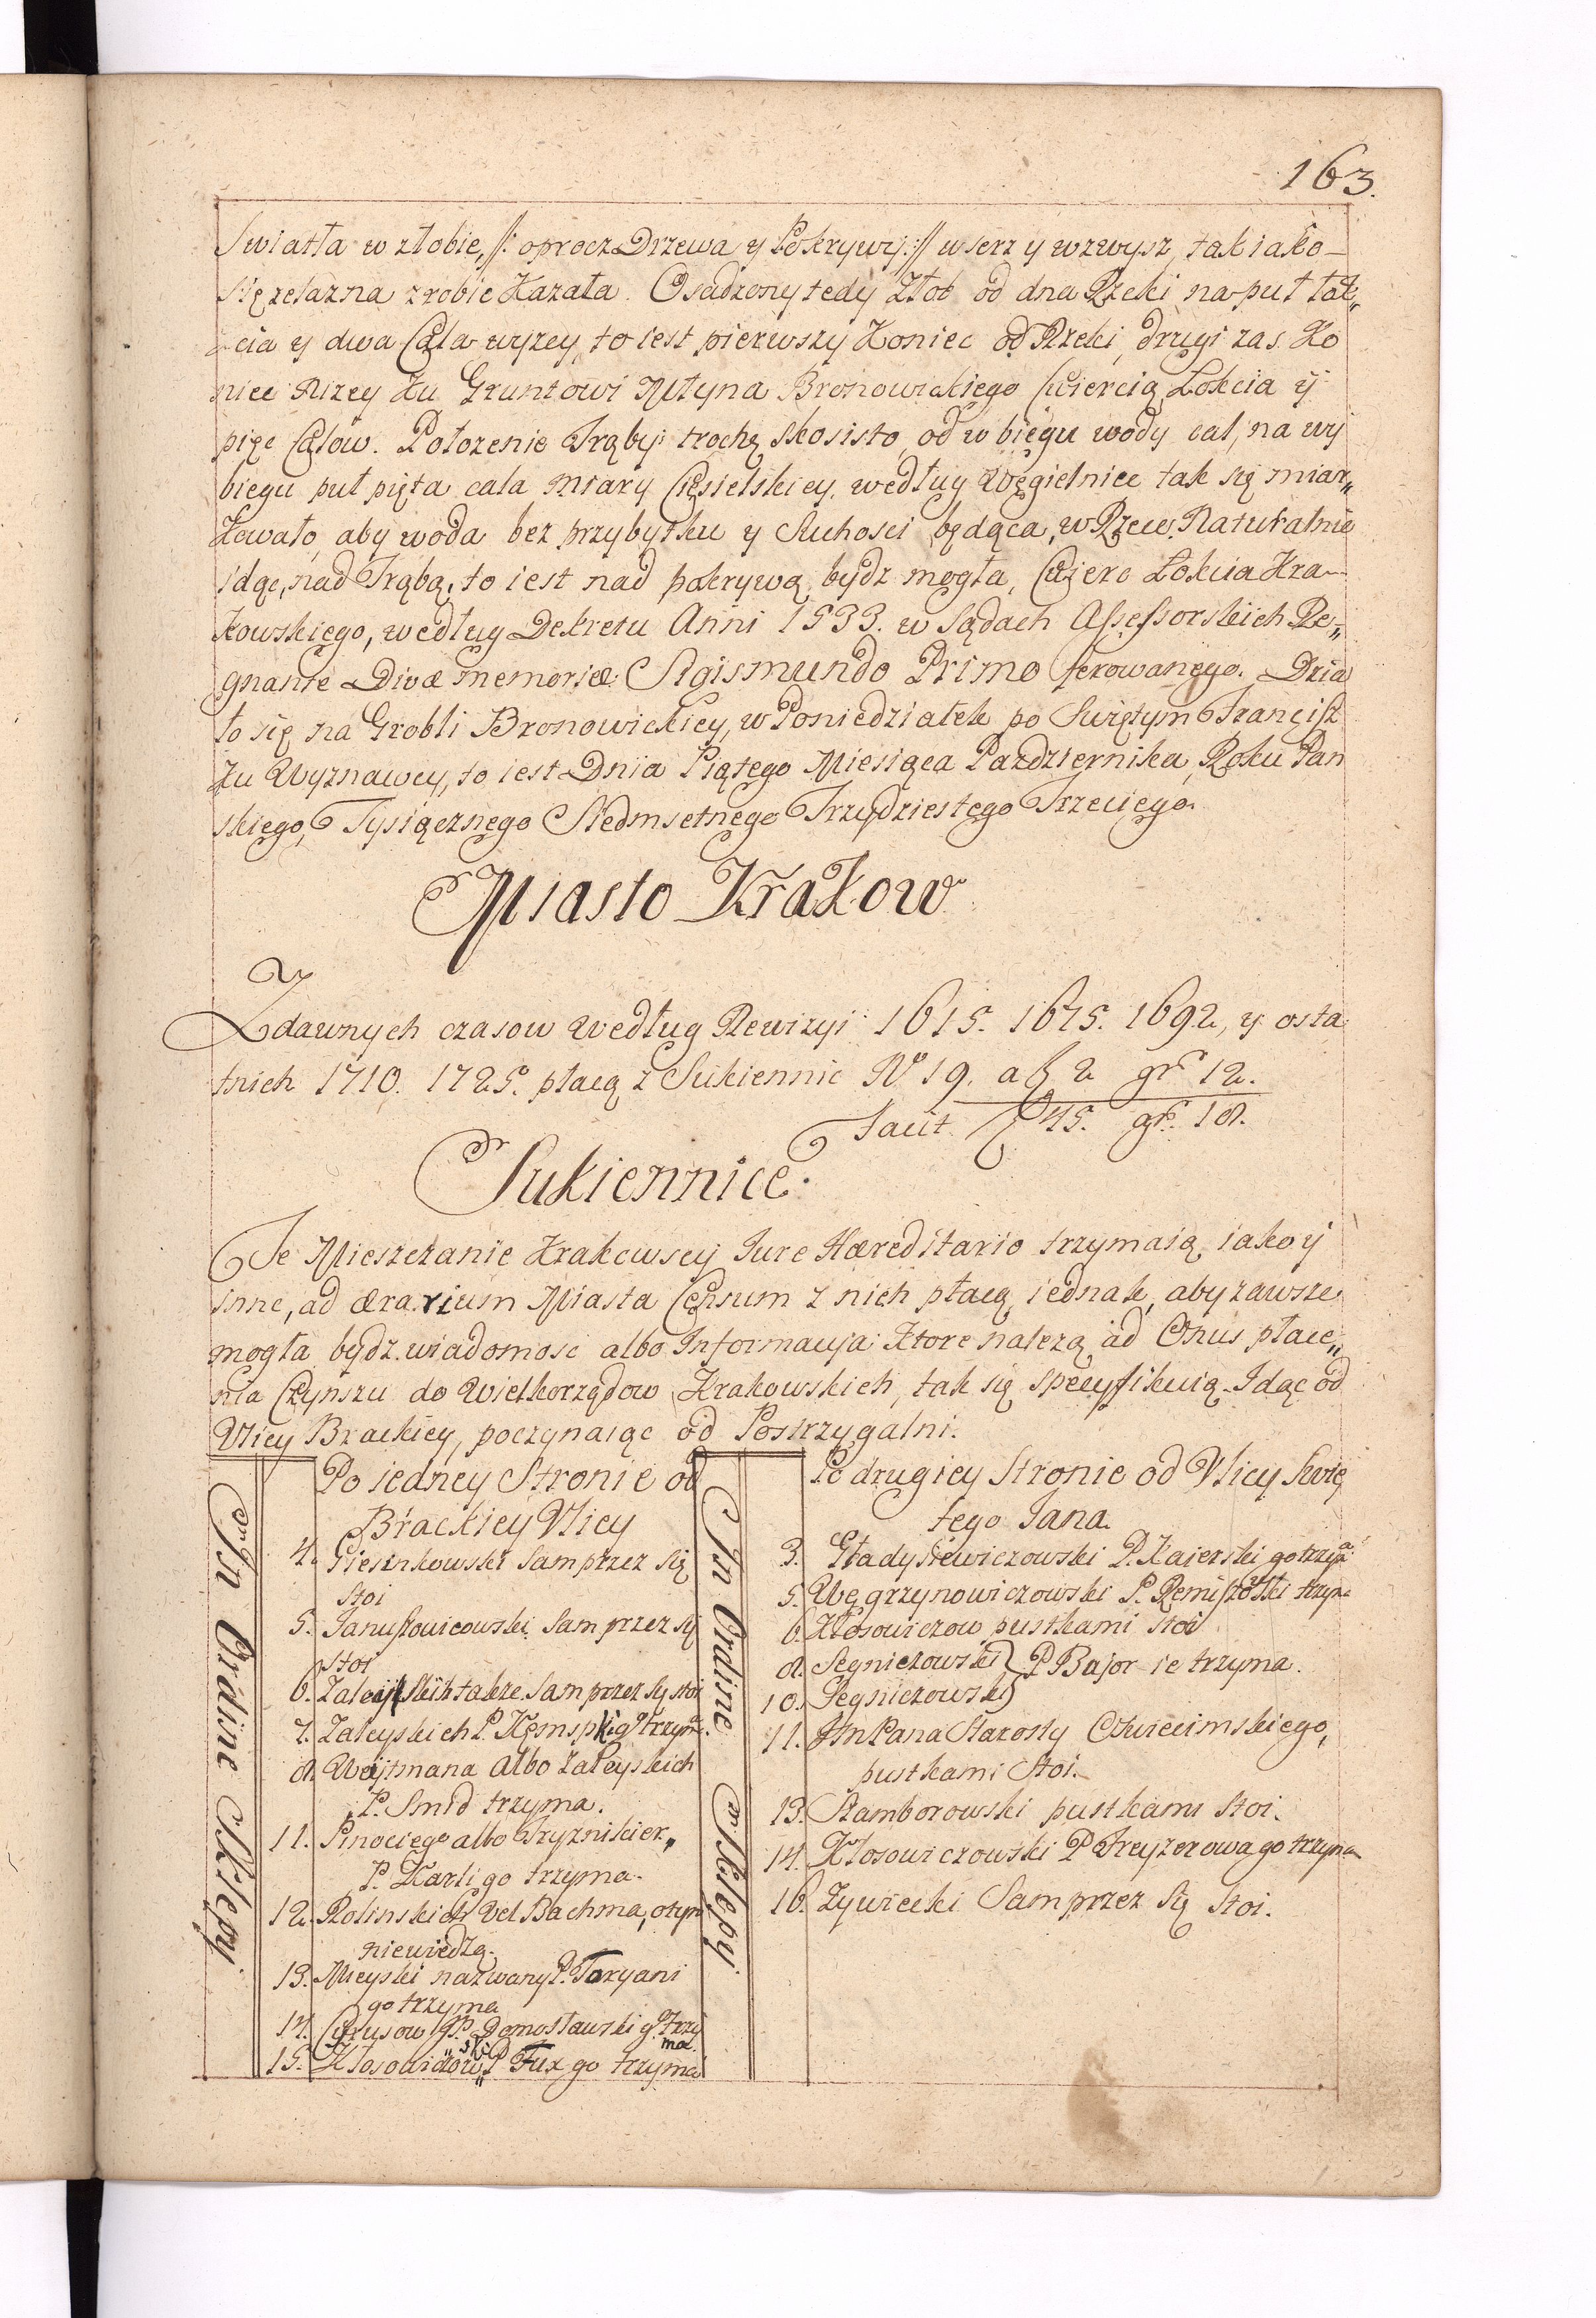 163.
Swiatła w złobie, //: oprocz Drzewa y Pokrywy :// w serz y wzwysz, tak iako
się zelazna zrobic Kazała. Osadzony tedy Złob od dna Rzeki na puł łok„
cia y dwa Cala wyzey, to iest pierwszy Koniec od Rzeki, drugi zas Ko
niec Nizey Ku Gruntowi Młyna Bronowickiego Cwiercią Łokcia y
pięc Calow. Połozenie Trąby trochę skosisto, od w biegu wody cal, na wy
biegu puł pięta cala miary Ciesielskiey, według Węgielnice tak się miar„
Kowało, aby woda bez przybytku y Suchosci będąca, w Rzece Naturalnie
idąc, nad Trąbą, to iest nad pokrywą, bydz mogła, Cwierc Łokcia Kra
Kowskiego, według Dekretu Anni 1533. w Sądach Assessorskich Re„
gnante Divæ memoriæ Sigismundo Primo ferowanego. Dzia
ło się na Grobli Bronowickiey, w Poniedziałek po Swiętym Franciſz
Ku Wyznawcy, to iest Dnia Piątego Miesiąca Pazdziernika, Roku Pan
skiego, Tysiącznego Siedmsetnego Trzydziestego Trzeciego.
Miasto Krakow
Z dawnych czasow według Rewizyi 1615. 1675. 1692, y osta
tnich 1710. 1725. płacą z Sukiennic No 19. a f 2 gr 12.
Facit f 45. gr. 18.
Sukiennice.
Te Mieszczanie Krakowscy Jure Hæreditario trzymaią, iako y
inne, ad ærarium Miasta Censum z nich płacą, iednak, aby zawsze
mogła bydz wiadomosc albo Informacya Ktore nalezą ad Onus płace„
nia Czynszu do Wielkorządow Krakowskich, tak się specyfikuią. Idąc od
Vlicy Brackiey, poczynaiąc od Postrzygalni.
In Ordine Sklepy.
Po iedney Stronie od
Brackiey Vlicy
4. Gieszkowski sam przez się
stoi
5. Januſzowicowski. sam przez się
stoi
6. Zaleyskich takze sam przez się stoi
7. Zaleyskich P. Kęmspki go trzyma.
8. Weytmana albo Zaleyskich
P. Smid trzyma.
11. Pinociego albo Fryznikier„
P. Karli go trzyma.
12. Rolinskich Vel Bachma, o tym
niewiedzą.
13. Mieyski nazwany P. Toryani
go trzyma
14. Cyrusow JP. Domosławski go trzy
ma.
15. Kłosowiczow„ski P. Fux go trzyma
In Ordine Sklepy.
Po drugiey Stronie od Vlicy Swię
tego Jana.
3. Gładysiewiczowski P. Kaierski go trzyma.
5. Węgrzynowiczowski P. Remiszowski trzyma
6. Kłosowiczow pustkami stoi
8. Segniczowski } P Bajor ie trzyma.
10. Segniczowski
11. JMPana Starosty Oswiecimskiego,
pustkami Stoi.
13. Szamborowski pustkami stoi.
14. Kłosowiczowski P Freyzerowa go trzyma
16. Zywiecki Sam przez Się stoi.